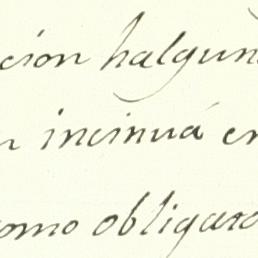 cion halgun
n incinuá en
como obligaro